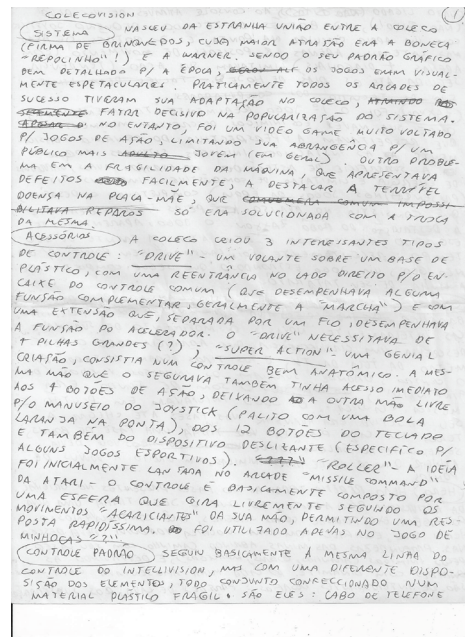 COLECOVISION
1
SISTEMA NASCEU DA ESTRANHA UNIÃO ENTRE A COLECO
(FIRMA DE BRINQUEDOS, CUJA MAIOR ATRAÇÃO ERA A BONECA
"REPOLINHO"!) E A WARNER. SENDO O SEU PADRÃO GRÁFICO
BEM DETALHADO P/ A ÉPOCA, OS JOGOS ERAM VISUAL-
MENTE ESPETACULARES. PRATICAMENTE TODOS OS ARCADES DE
SUCESSO TIVERAM SUA ADAPTAÇÃO NO COLECO,
FATOR DECISIVO NA POPULARIZAÇÃO DO SISTEMA.
NO ENTANTO, FOI UM VIDEO GAME MUITO VOLTADO
P/ JOGOS DE AÇÃO, LIMITANDO SUA ABRANGÊNCIA P/ UM
PÚBLICO MAIS JOVEM (EM GERAL). OUTRO PROBLE-
MA ERA A FRAGILIDADE DA MÁQUINA, QUE APRESENTAVA
DEFEITOS FACILMENTE, A DESTACAR A TERRÍVEL
DOENÇA NA PLACA-MÃE, QUE
SÓ ERA SOLUCIONADA COM A TROCA
DA MESMA.
ACESSÓRIOS A COLECO CRIOU 3 INTERESSANTES TIPOS
DE CONTROLE: "DRIVE" - UM VOLANTE SOBRE UM BASE DE
PLÁSTICO, COM UMA REENTRÂNCIA NO LADO DIREITO P/O EN-
CAIXE DO CONTROLE COMUM (QUE DESEMPENHAVA ALGUMA
FUNSÃO COMPLEMENTAR, GERALMENTE A "MARCHA") E COM
UMA EXTENSÃO QUE, SEPARADA POR UM FIO, DESEMPENHAVA
A FUNSÃO DO ACELERADOR. O "DRIVE" NECESSITAVA DE
4 PILHAS GRANDES (?); "SUPER ACTION" - UMA GENIAL
CRIAÇÃO, CONSISTIA NUM CONTROLE BEM ANATÔMICO. A MES-
MA MÃO QUE O SEGURAVA TAMBÉM TINHA ACESSO IMEDIATO
AOS 4 BOTÕES DE AÇÃO, DEIXANDO A OUTRA MÃO LIVRE
P/O MANUSEIO DO JOYSTICK (PALITO COM UMA BOLA
LARANJA NA PONTA), DOS 12 BOTÕES DO TECLADO
E TAMBÉM DO DISPOSITIVO DESLIZANTE (ESPECÍFICO P/
ALGUNS JOGOS ESPORTIVOS). "ROLLER" - A IDÉIA
FOI INICIALMENTE LANÇADA NO ARCADE "MISSILE COMMAND"
DA ATARI - O CONTROLE É BASICAMENTE COMPOSTO POR
UMA ESFERA QUE GIRA LIVREMENTE SEGUINDO OS
MOVIMENTOS "ACARICIANTES" DA SUA MÃO, PERMITINDO UMA RES-
POSTA RAPIDÍSSIMA. FOI UTILIZADO APENAS NO JOGO DE
MINHOCAS "?"
CONTROLE PADRÃO SEGUIU BASICAMENTE A MESMA LINHA DO
CONTROLE DO INTELLIVISION, MAS COM UMA DIFERENTE DISPO-
SIÇÃO DOS ELEMENTOS, TODO CONJUNTO CONFECCIONADO NUM
MATERIAL PLÁSTICO FRÁGIL. SÃO ELES: CABO DE TELEFONE